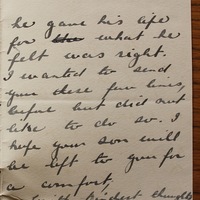 he gave his life
for what he
felt was right.
I wanted to send
you these few lines,
before but did not
like to do so. I
hope your son will
be left to you for
a comfort,
with kindest thoughts